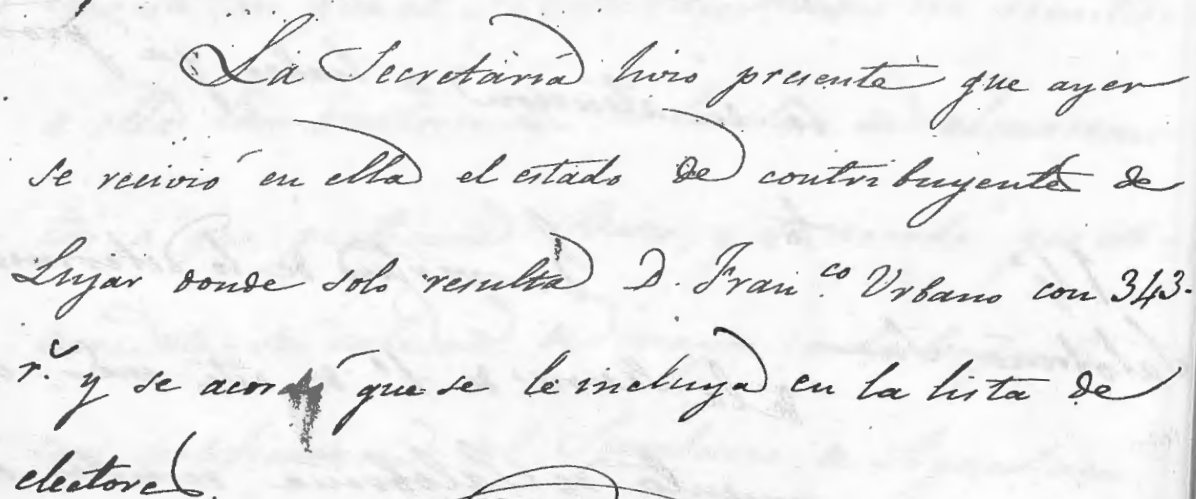 La Secretaría hizo presente que ayer
se recivió en ella el estado de contribuyentes de
Lujar donde solo resulta D. Fran.co Urbano con 343.
r.s y se acordó que se le incluya en la lista de
electores.